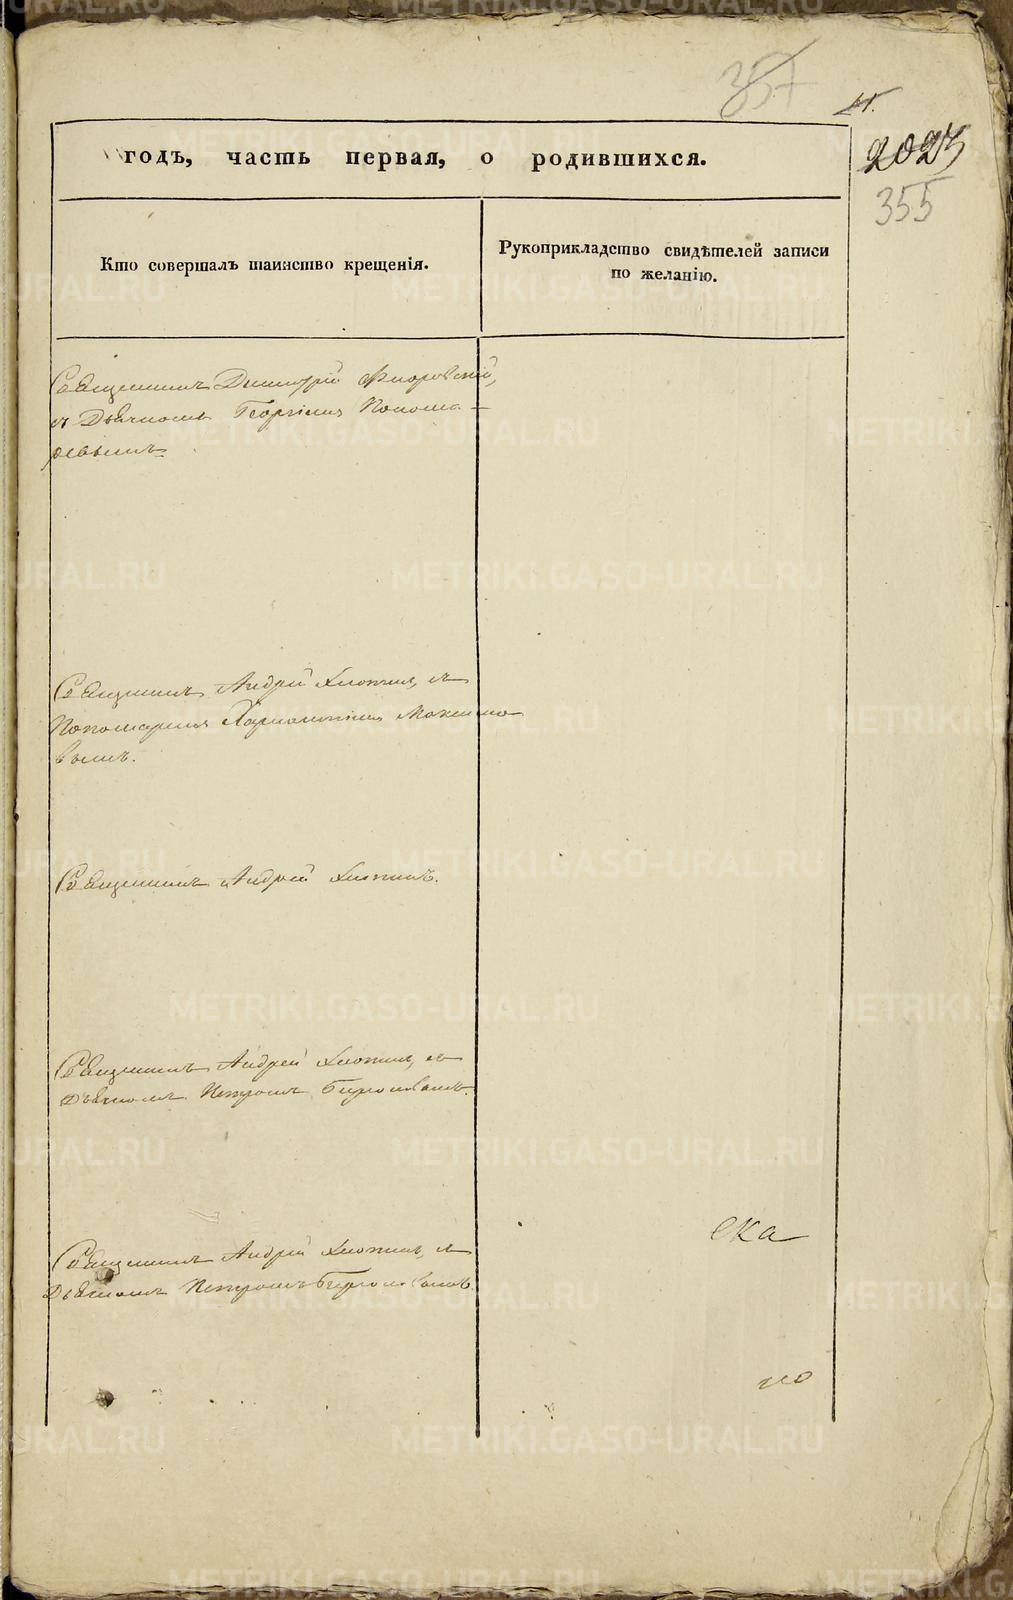 357
11.
2023
355
годъ, часть первая, о родившихся.
Кто совершалъ таинство крещенія.
Рукоприкладство свидѣтелей записи
по желанію.
Священникъ Димитрій Флоровскій,
съ Дьячкомъ Георгіемъ Понома-
ревымъ
Священникъ Андрей съ
Пономаремъ Харлампіемъ Максимо
вымъ.
Священникъ Андрей
Священникъ Андрей съ
Дьячкомъ Петромъ
Священникъ Андрей съ
Дьячкомъ Петромъ
ека
го
METRIKI.GASO-URAL.RU